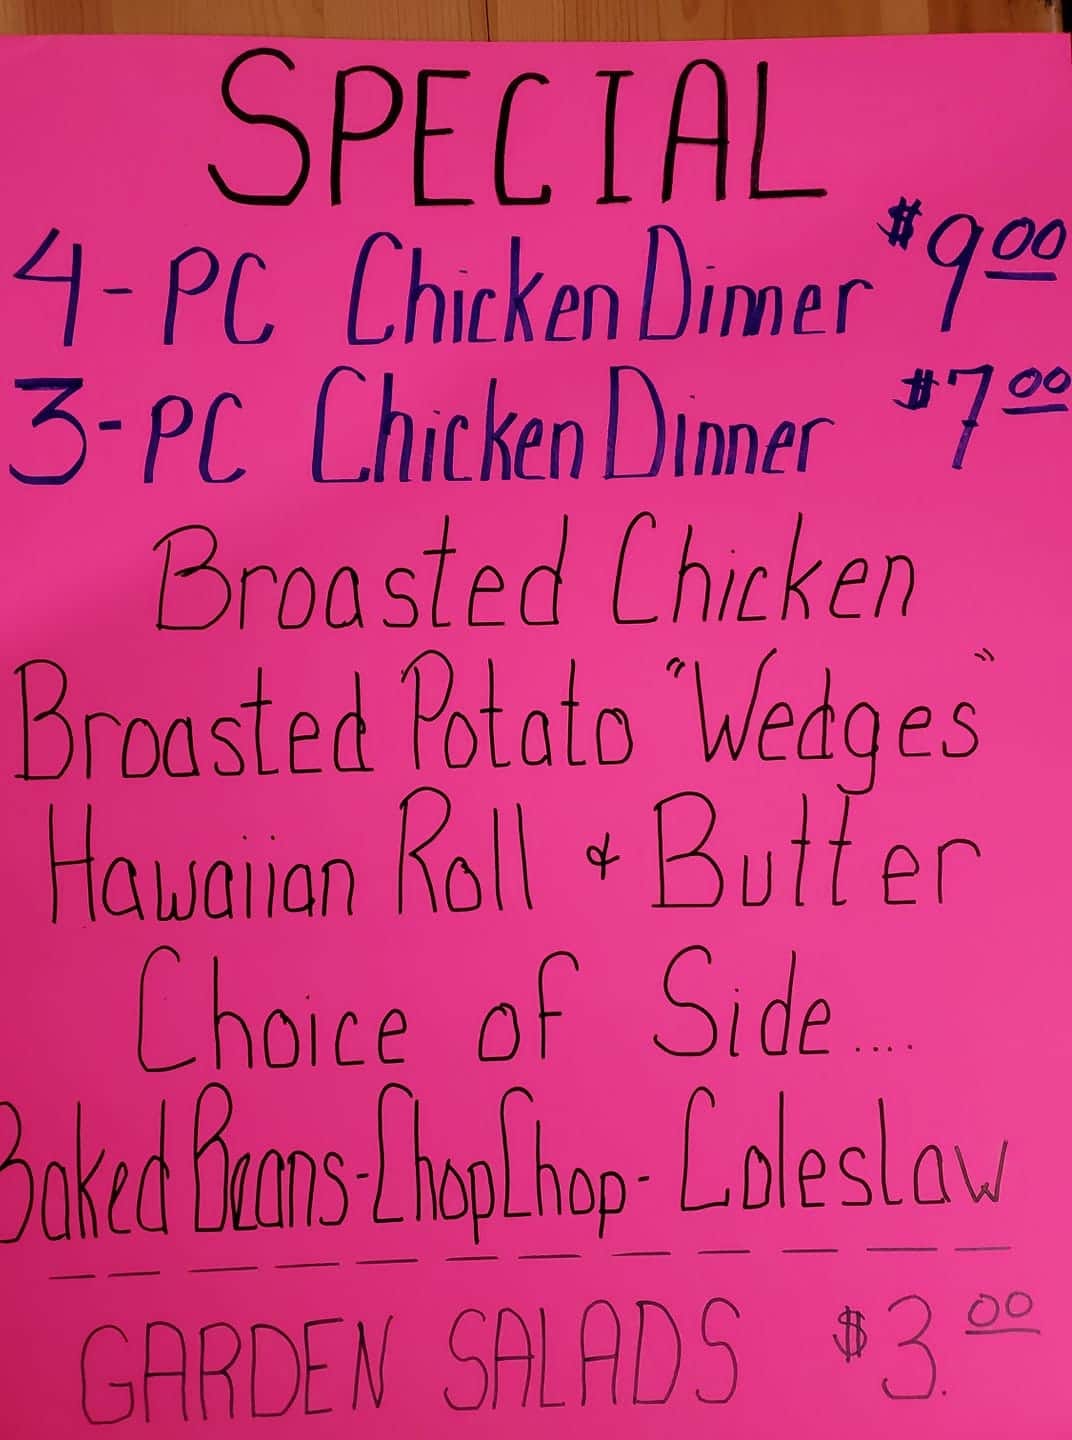 SPECIAL
4-PC Chicken Dinner $9.00
3-PC Chicken Dinner $7.00
Broasted Chicken
Broasted Potato "Wedges"
Hawaiian Roll & Butter
Choice of Side....
Baked Beans-ChopChop-Coleslaw
GARDEN SALADS $3.00